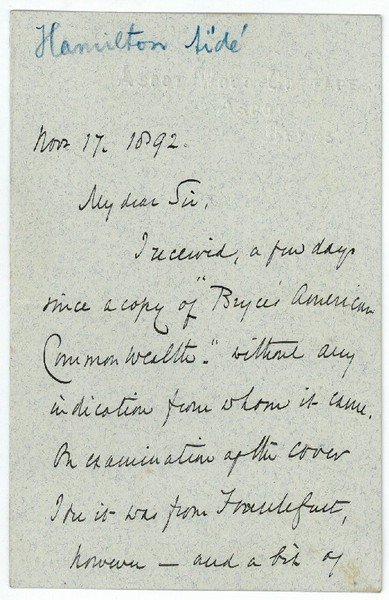 Hamilton Aïdé
Nov 17. 1892.
My dear Sir,
I received, a few days
since a copy of "Bryce's American
Commonwealth." without any
indication from whom it came.
On examination of the cover
I see it was from Frankfurt,
however — and a bit of